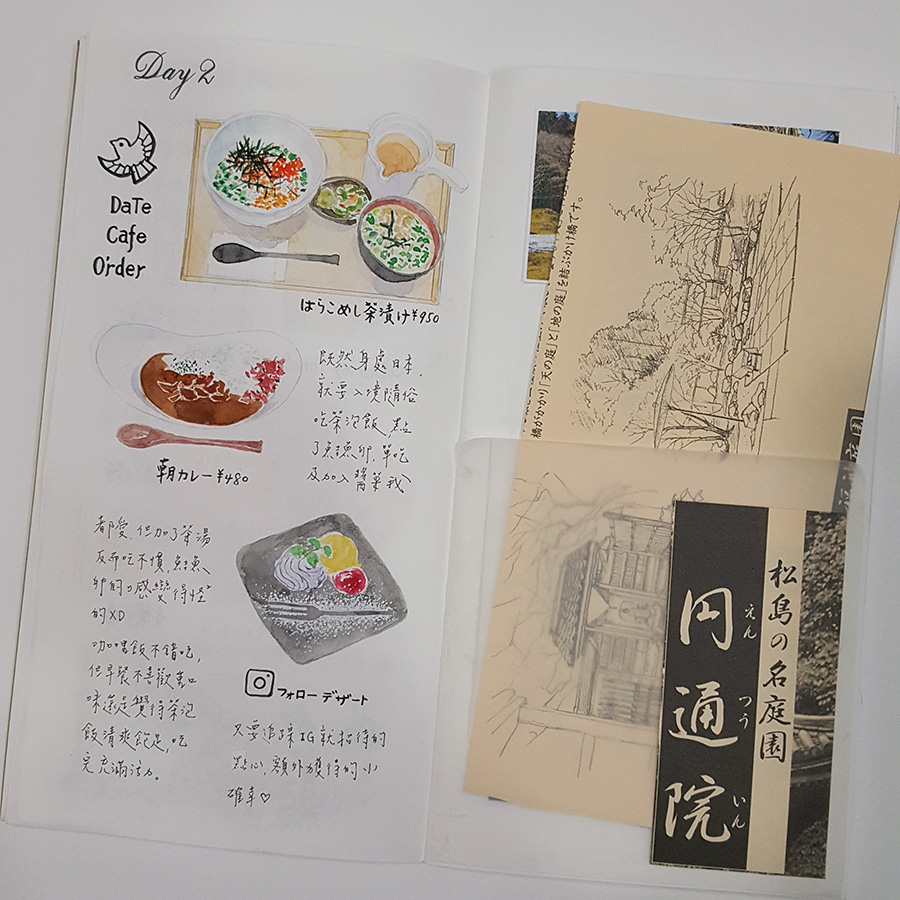 Day 2
DaTe
Cafe
Order
はらこめし茶漬け¥950
既然身處日本,
就要入境隨俗
吃茶泡飯,點
了鮭魚卵,單吃
及加入醬菜我
朝カレー¥480
都愛,但加了茶湯
反而吃不慣,鮭魚
卵的口感變得怪²
的XD
咖哩飯不錯吃,
但早餐不喜歡重口
味還是覺得茶泡
飯清爽飽足,吃
完充滿活力。
フォローデザート
只要追蹤IG就招待的
點心,額外獲得的小
確幸♡
橋がかかり「天の庭」と「地の庭」を結ぶかけ橋です。
松島の名庭園
円通院
えん
つう
いん